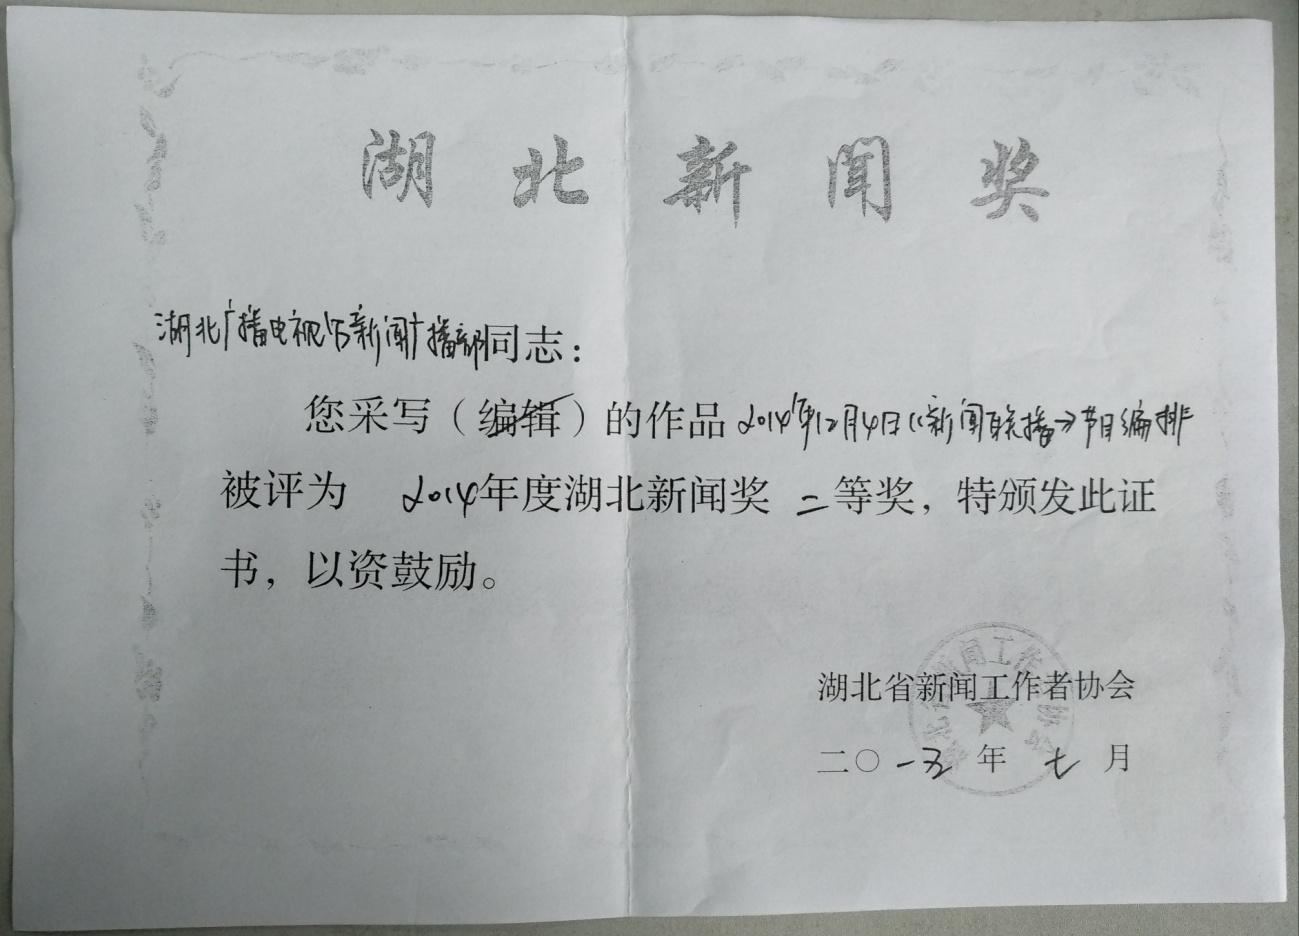 湖北新闻奖
湖北广播电视台新闻广播部同志：
您采写（编辑）的作品2014年12月4日《新闻联播》节目编排
被评为 2014年度湖北新闻奖 二等奖，特颁发此证
书，以资鼓励。
湖北省新闻工作者协会
二〇一五年 七月